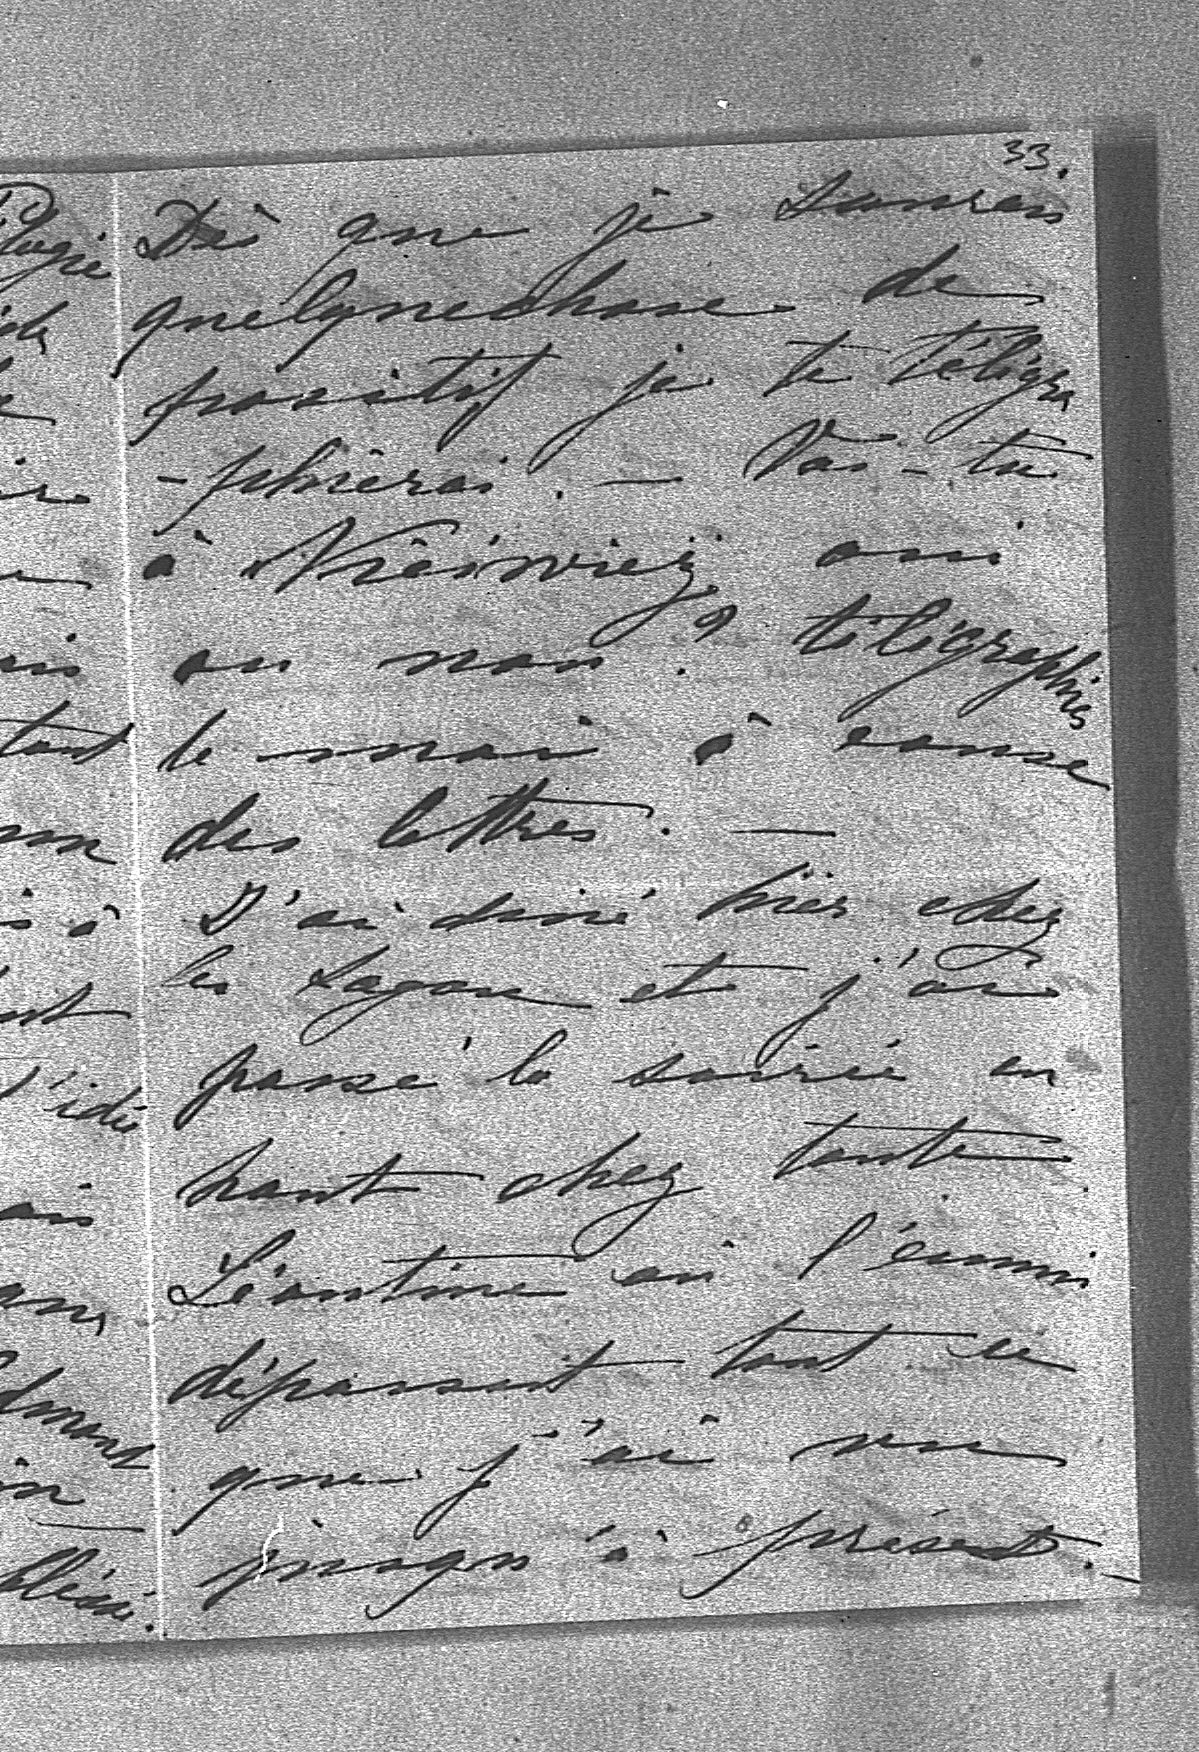 33.
Dès que je saurais
quelquechose de
positif je te télégra
-phierai. — Vas-tu
à Nieśwież oui
ou non? télégraphies
le moi à cause
des lettres. —
J'ai diné hier chez
les Sagan et j'ai
passé la soirée en
haut chez tante
Léontine où l'ennui
dépassait tout ce
que j'ai vu
jusqu'à présent. —